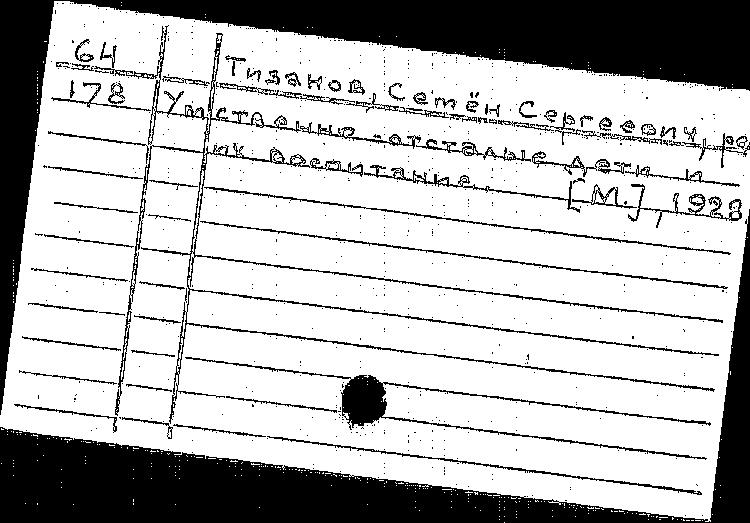 64 Тизанов, Семён Сергеевич, ре
178 Умственно-отсталые дети и
их воспитание. [М.], 1928